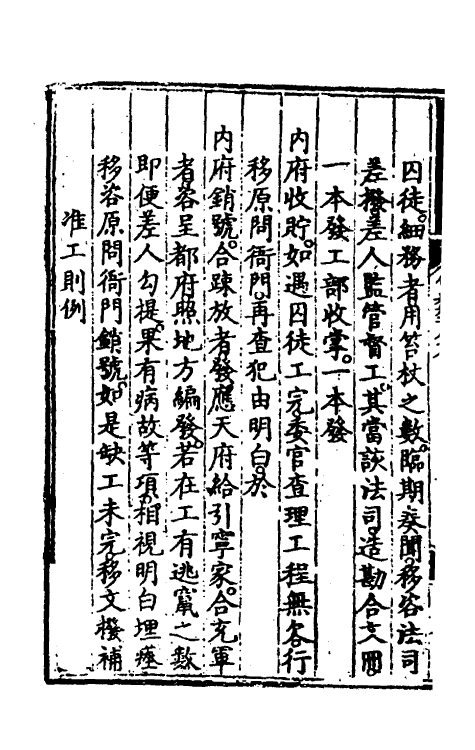 囚徒。細務者用笞杖之數。臨期奏聞。移咨法司
差撥。差人監管督工。其當該法司。造勘合文冊。
一本發工部收掌。一本發
內府收貯。如遇囚徒工完。委官查理工程無欠。各行
移原問衙門。再查犯由明白。於
內府銷號。合疎放者。發應天府給引寧家。合充軍
者。咨呈都府。照地方編發。若在工有逃竄之數
即便差人勾提。果有病故等項。相視明白埋瘞
移咨原問衙門銷號。如是缺工未完。移文撥補
准工則例